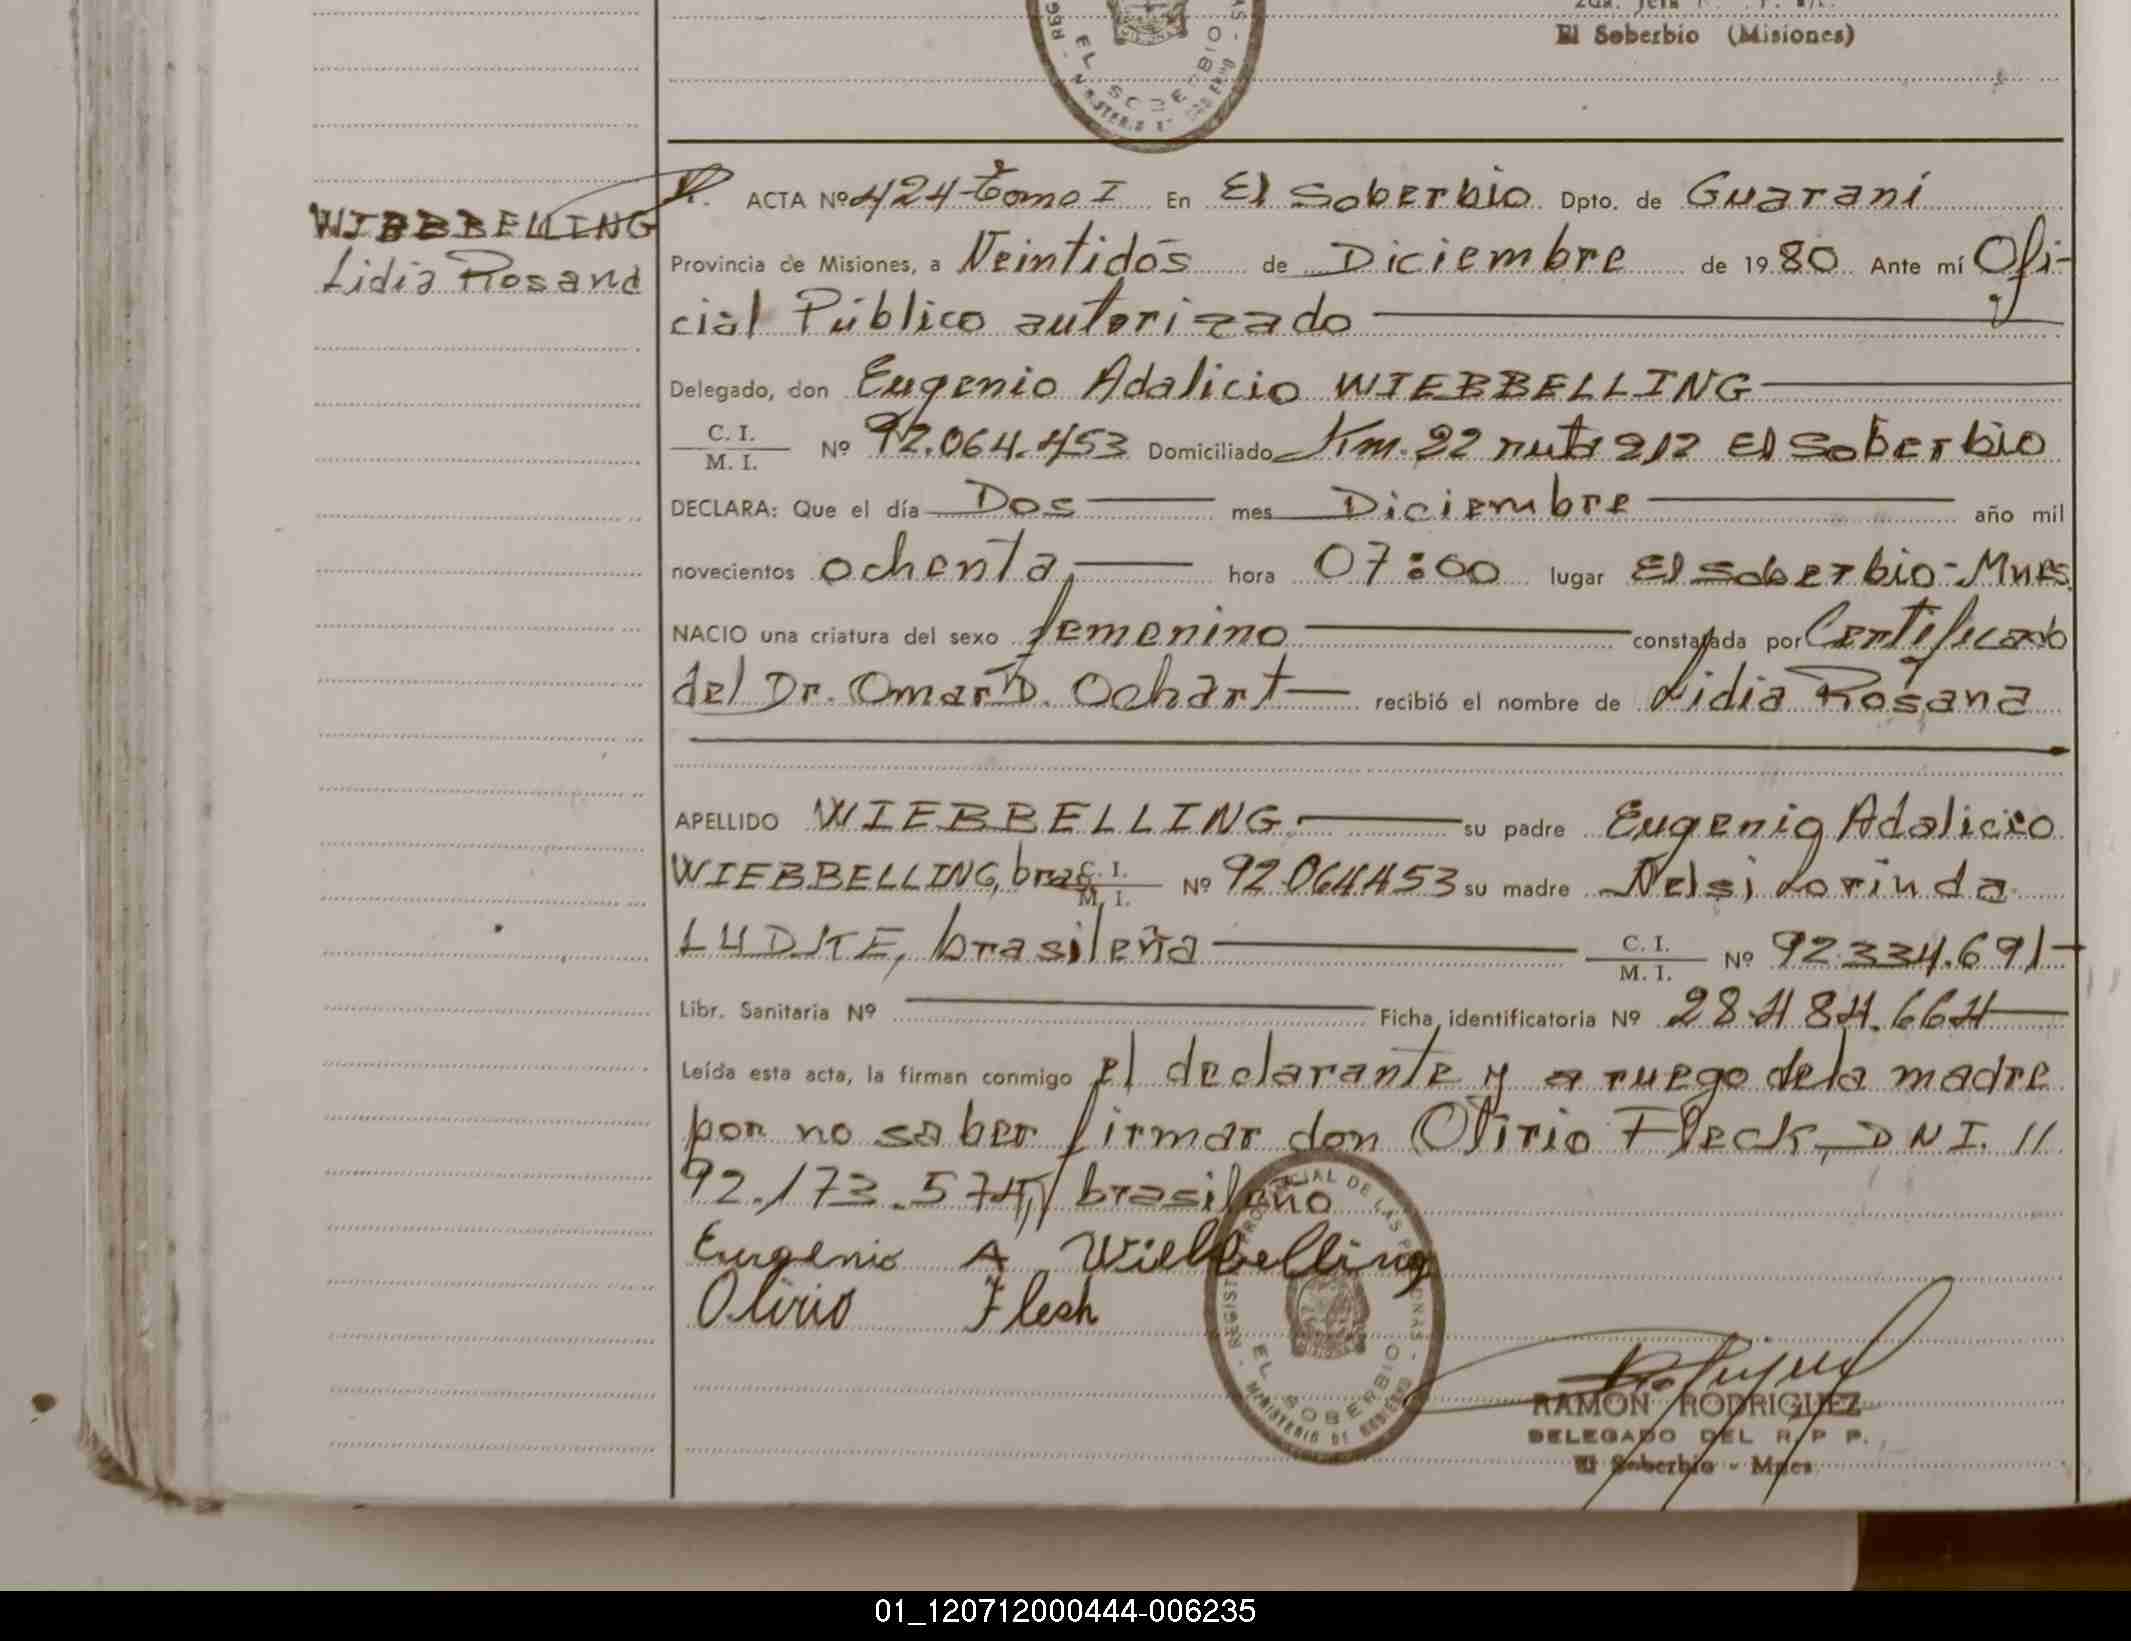 El Soberbio (Misiones)
EL SOBERBIO
WIEBBELLING
Lidia Rosana
ACTA Nº 424 - Tomo I En El Soberbio Dpto. de Guaraní
Provincia de Misiones, a Veintidós de Diciembre de 1980 Ante mí Ofi-
cial Público autorizado
Delegado, don Eugenio Adalicio WIEBBELLING
C. I.
M. I. Nº 92.064.453 Domiciliado Km. 22 ruta 212 El Soberbio
DECLARA: Que el día Dos mes Diciembre año mil
novecientos ochenta, hora 07:00 lugar El Soberbio - Mnes.
NACIO una criatura del sexo femenino constatada por Certificado
del Dr. Omar D. Ochart recibió el nombre de Lidia Rosana
APELLIDO WIEBBELLING su padre Eugenio Adalicio
WIEBBELLING, bras. C. I. M. I. Nº 92.064.453 su madre Nelsi Lorinda
LUDTKE, brasileña C. I. M. I. Nº 92.334.691
Libr. Sanitaria Nº Ficha identificatoria Nº 28.484.664
Leída esta acta, la firman conmigo el declarante y a ruego de la madre
por no saber firmar don Olirio Fleck, DNI. //
92.173.574,/ brasileño
Eugenio A Wiebbelling
Olirio Flech
REGISTRO PROVINCIAL DE LAS PERSONAS
EL SOBERBIO
MINISTERIO DE GOBIERNO
RAMON RODRIGUEZ
DELEGADO DEL R. P. P.
El Soberbio - Mnes
01_120712000444-006235